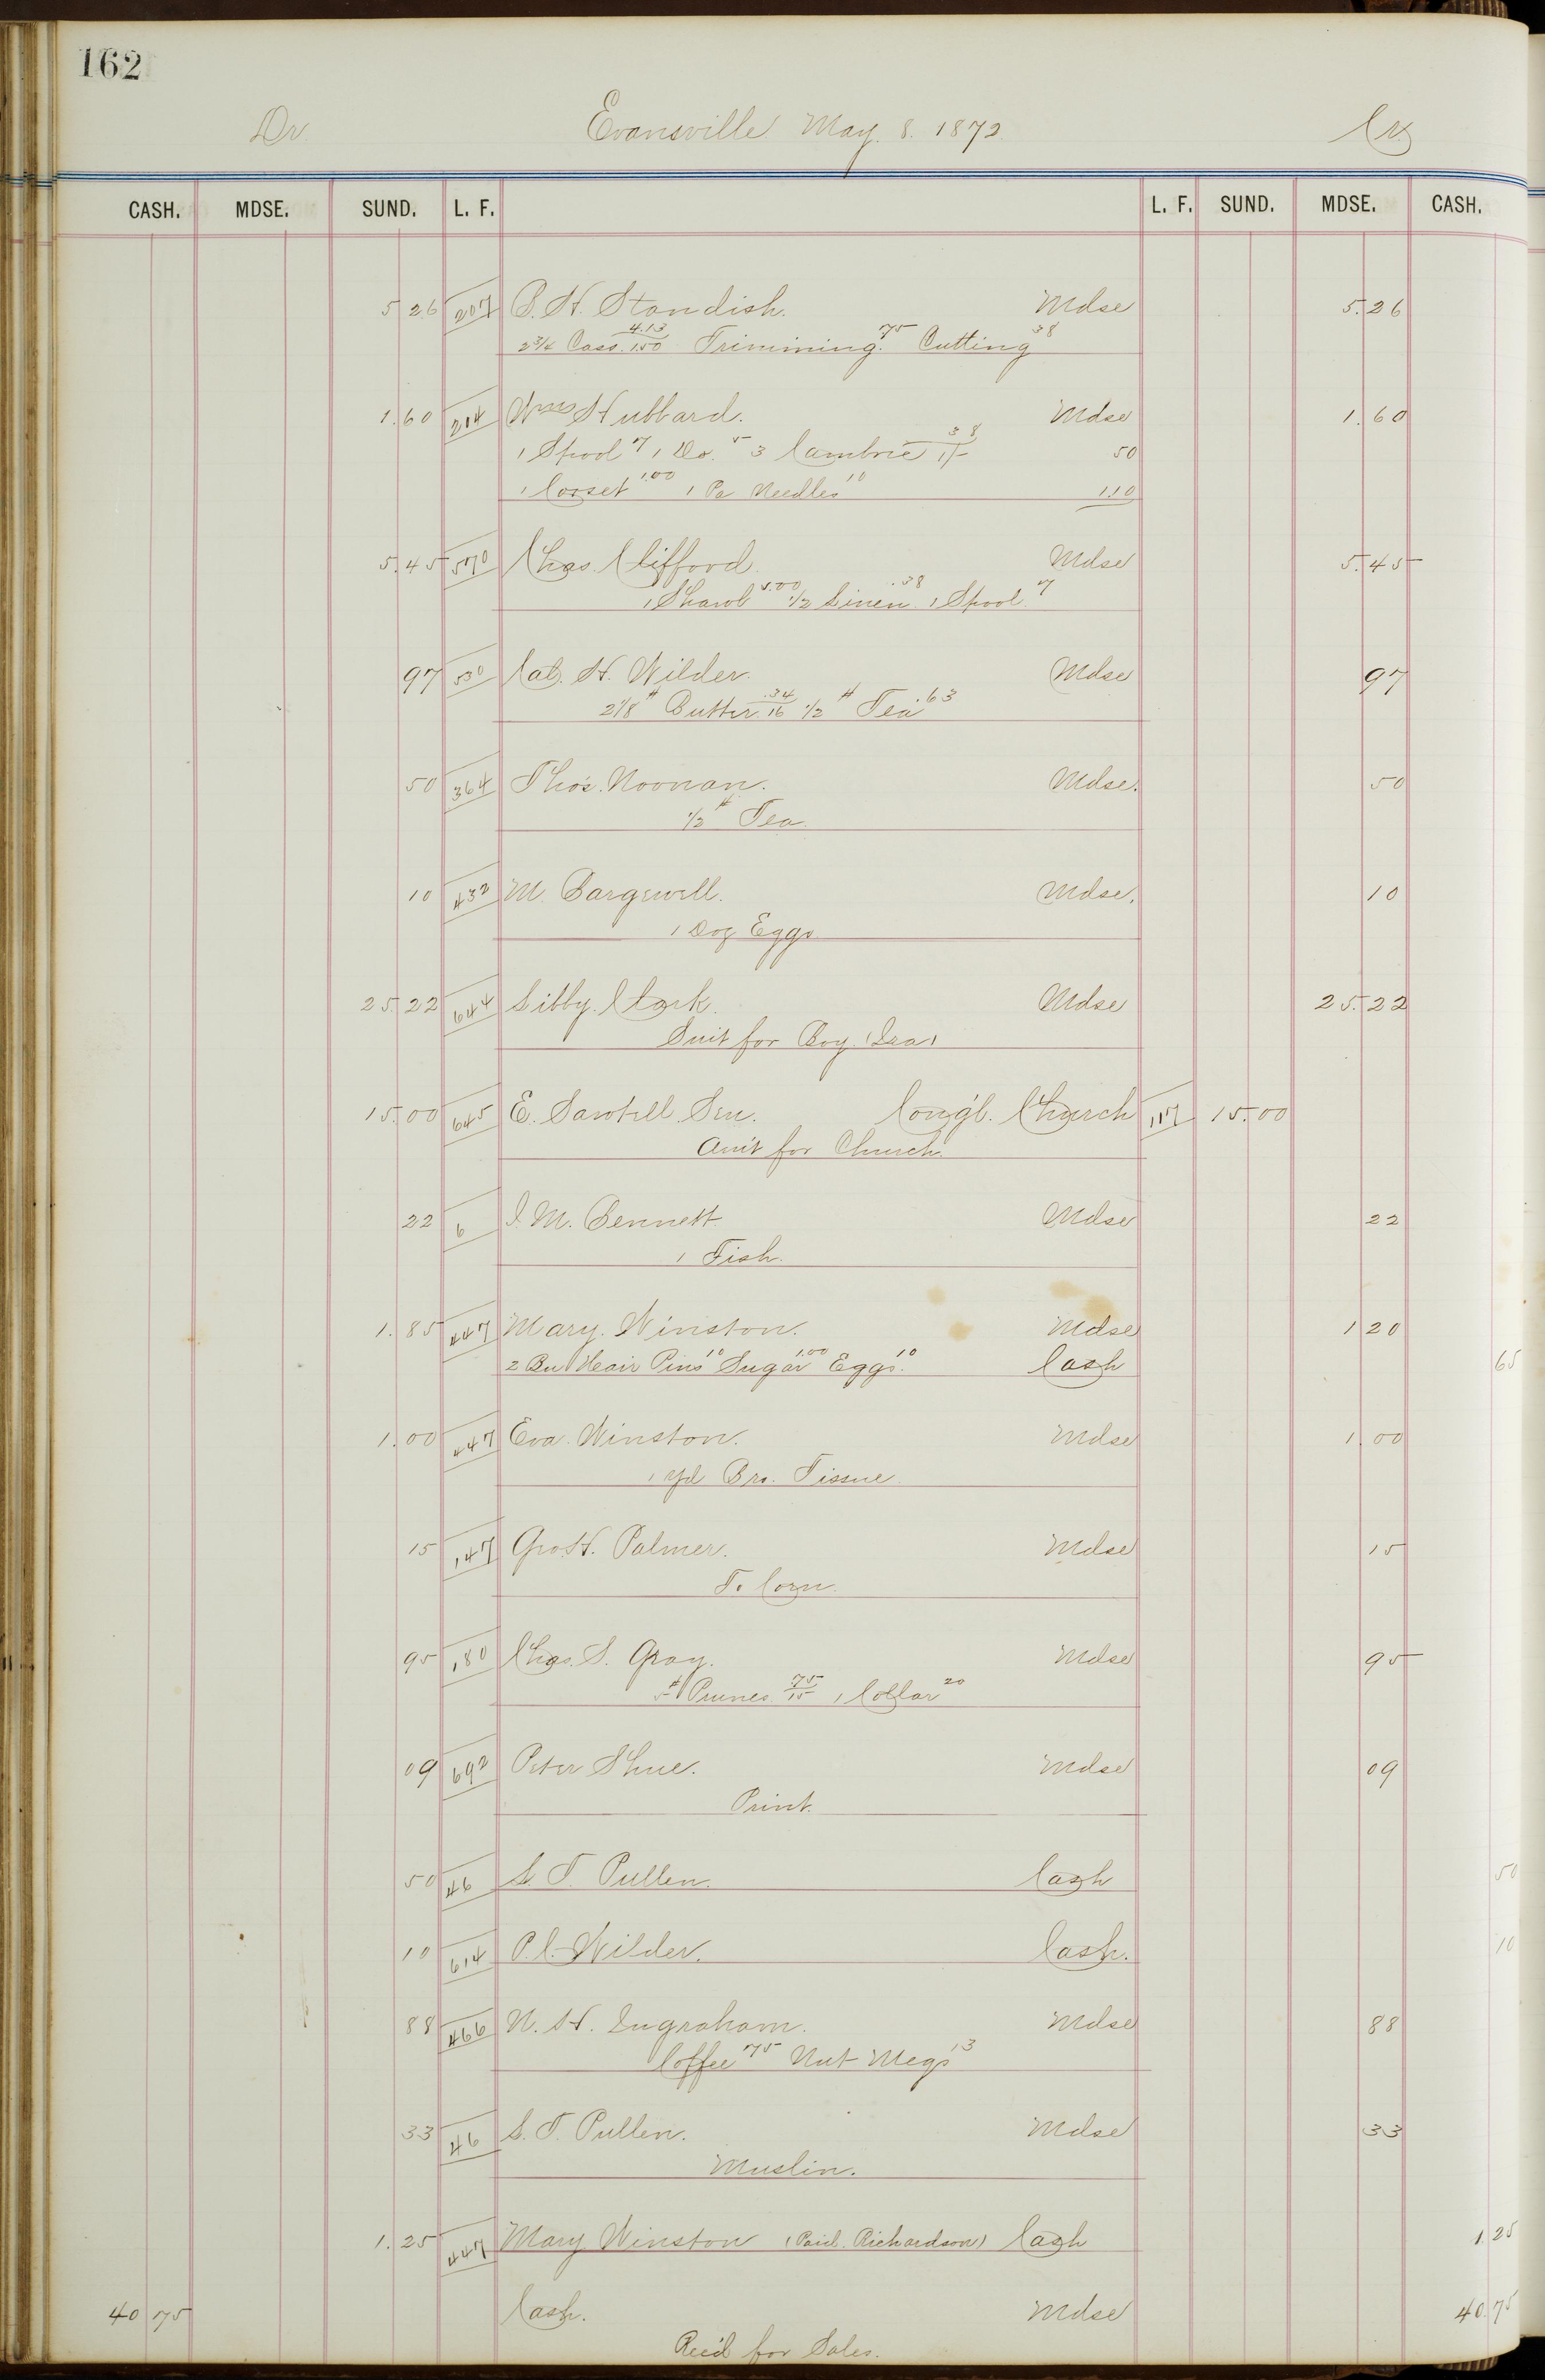 162
Dr. Evansville May. 8. 1872 Cr.
CASH. MDSE. SUND. L. F. L. F. SUND. MDSE. CASH.
5 26 207 B. H. Standish. Mdse 5.26
2 3/4 Cass. 4.13/1.50 Trimming. 75 Cutting 38
1.60 214 Wm Hubbard. Mdse 1.60
1 Spool 7 1 Do. 5 3 Cambric 38 50
1 Corset 1.00 1 Pa Needles 10 1.10
5.45 570 Chas. Clifford. Mdse 5.45
1 Shawl 5.00 1/2 Linen .38 1 Spool 7
97 530 Cal. H. Wilder. Mdse 97
2 1/8 # Butter .34/16 1/2 # Tea .63
50 364 Thos. Noonan. Mdse. 50
1/2 # Tea.
10 432 M. Bargewell. Mdse. 10
1 Doz Eggs
25.22 644 Libby. Clark. Mdse 25.22
Suit for Boy (Ira)
15.00 645 E. Sawtell Sen. Cong'l. Church 117 15.00
Am't for Church.
22 6 I. M. Bennett Mdse 22
1 Fish.
1.85 447 Mary. Winston. Mdse 1 20
2 Bu Heair Pins 10 Sugar 1.00 Eggs. 10 Cash 65
1.00 447 Eva Winston. Mdse 1.00
1 yd Bro. Tissue
15 147 Geo. H. Palmer. Mdse 15
To Corn.
95 180 Chas. S. Gray. Mdse 95
5 # Prunes 75/15 1 Collar 20
09 692 Peter Shue. Mdse 09
Print.
50 46 S. T. Pullen. Cash 50
10 614 P. C. Wilder. Cash. 10
88 466 N. H. Ingraham. Mdse 88
Coffee 75 Nut Megs 13
33 46 S. T. Pullen. Mdse 33
Muslin.
1.25 447 Mary Winston (Paid. Richardson) Cash 1.25
40 75 Cash. Mdse 40.75
Rec'd for Sales.